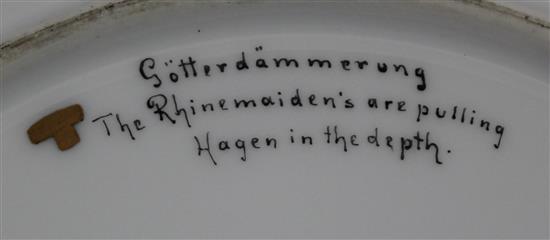 Götterdämmerung
The Rhinemaiden's are pulling
Hagen in the depth.